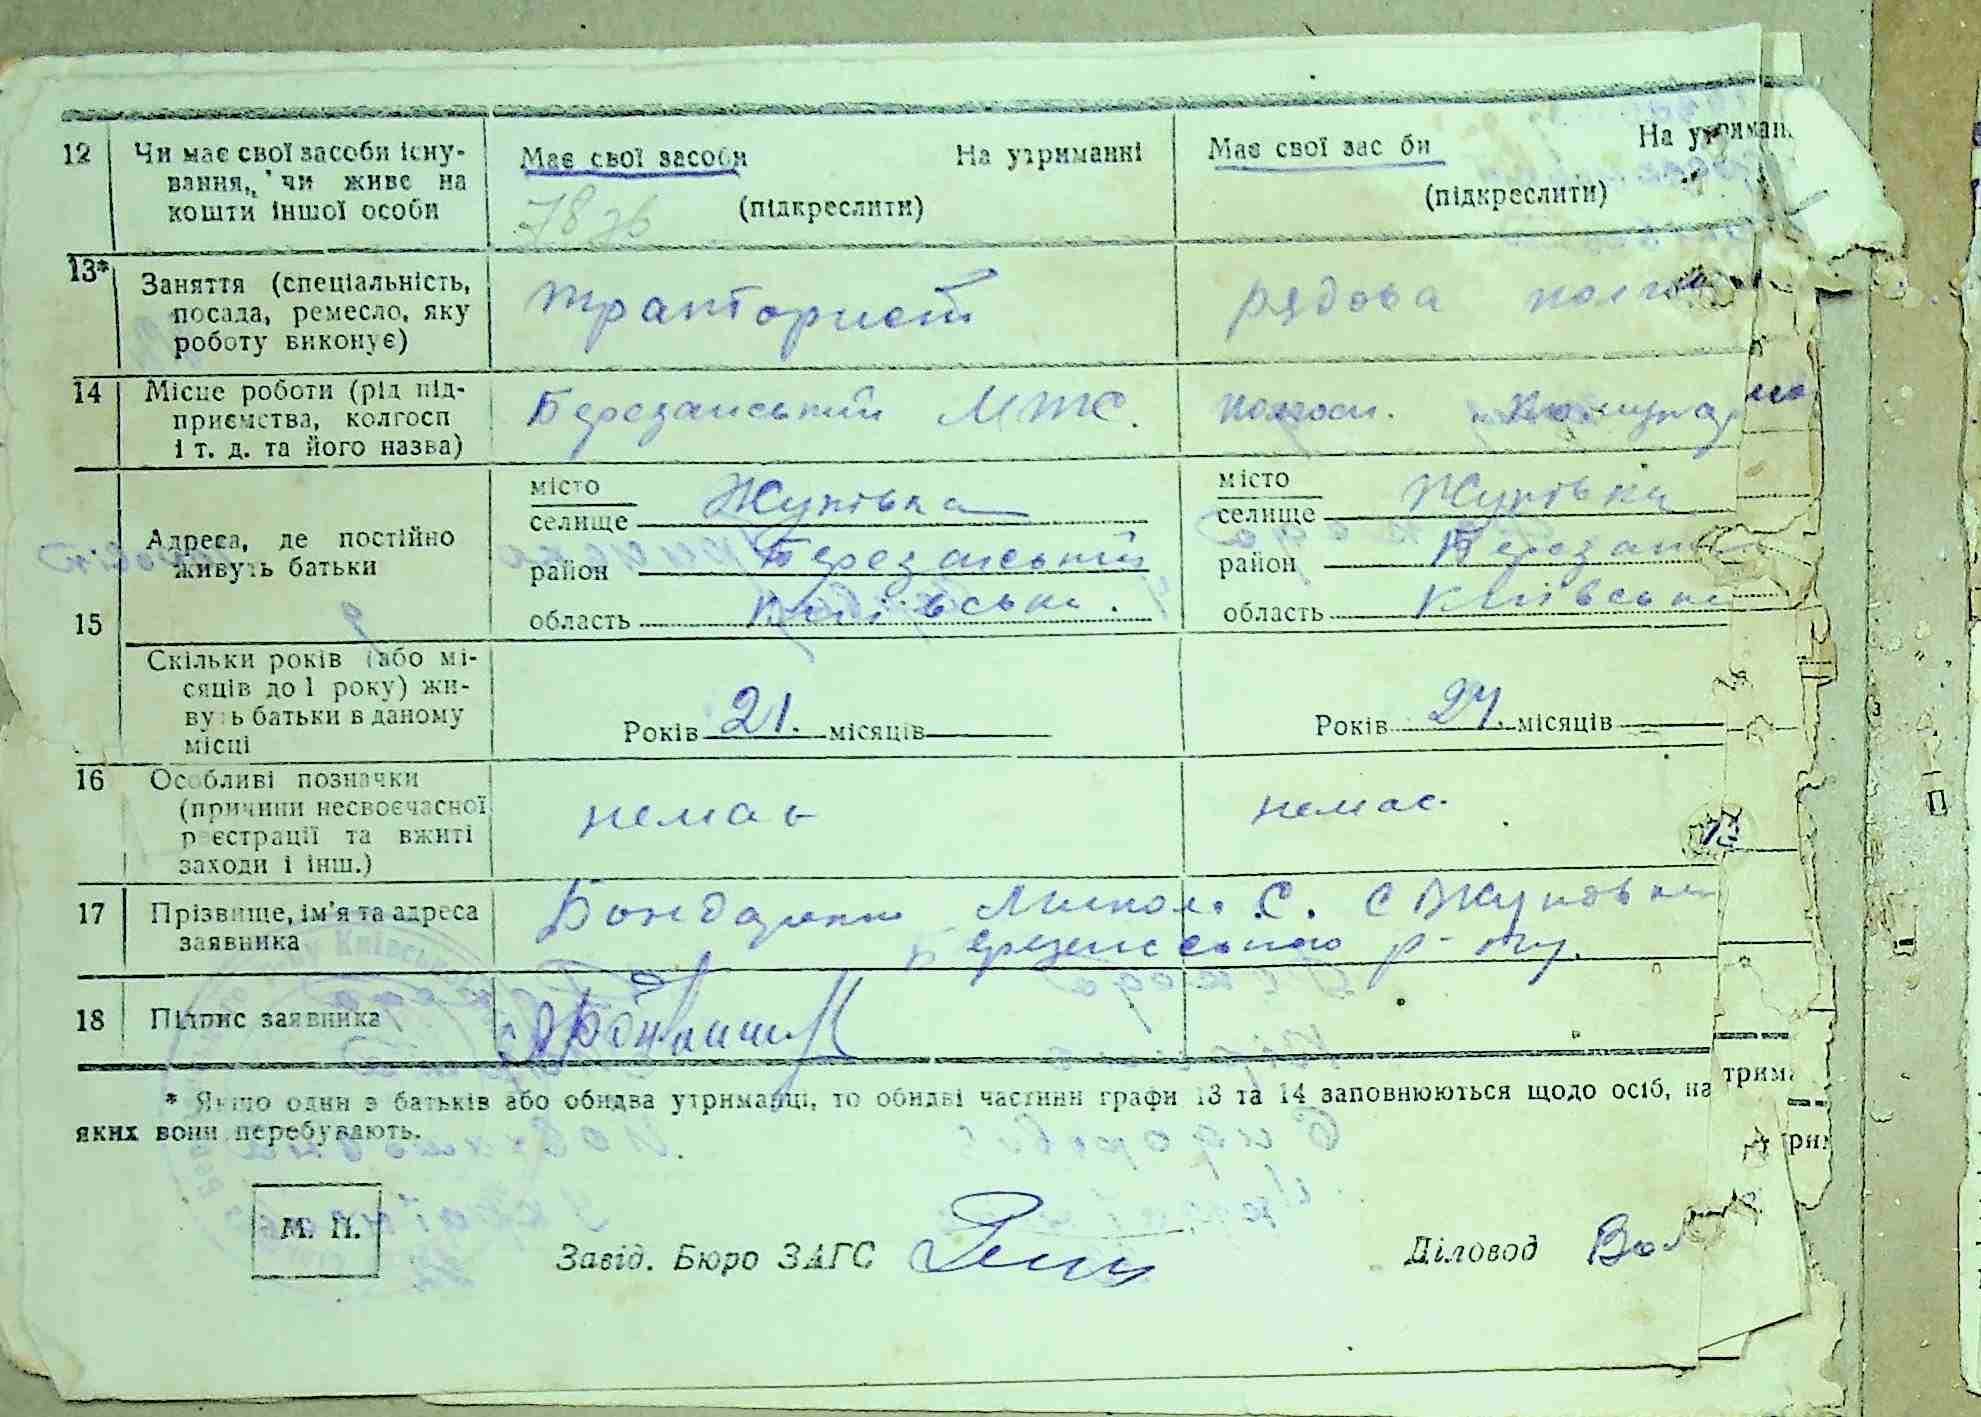 12 Чи має свої засоби існу- Має свої засоби На утриманні Має свої зас би На утриман
вання, чи живе на
кошти іншої особи (підкреслити) (підкреслити)
13* Заняття (спеціальність, тракторист рядова
посада, ремесло, яку
роботу виконує)
14 Місце роботи (рід під- Березанський МТС. колгосп.
приємства, колгосп
і т. д. та його назва)
місто місто
селище Жуківка селище Жуківка
Адреса, де постійно
живуть батьки
район Березанський район Березан
15 область Київська. область Київська
Скільки років (або мі-
сяців до 1 року) жи-
вуть батьки в даному Років 21. місяців Років 24. місяців
місці
16 Особливі позначки
(причини несвоєчасної немає немає
реєстрації та вжиті
заходи і інш.)
17 Прізвище, ім'я та адреса Бондаренко С. с Жуковка
заявника Березанського р-ну.
18 Підпис заявника
* Якщо один з батьків або обидва утриманці, то обидві частини графи 13 та 14 заповнюються щодо осіб, на
яких вони перебувають.
М. П.
Завід. Бюро ЗАГС Діловод